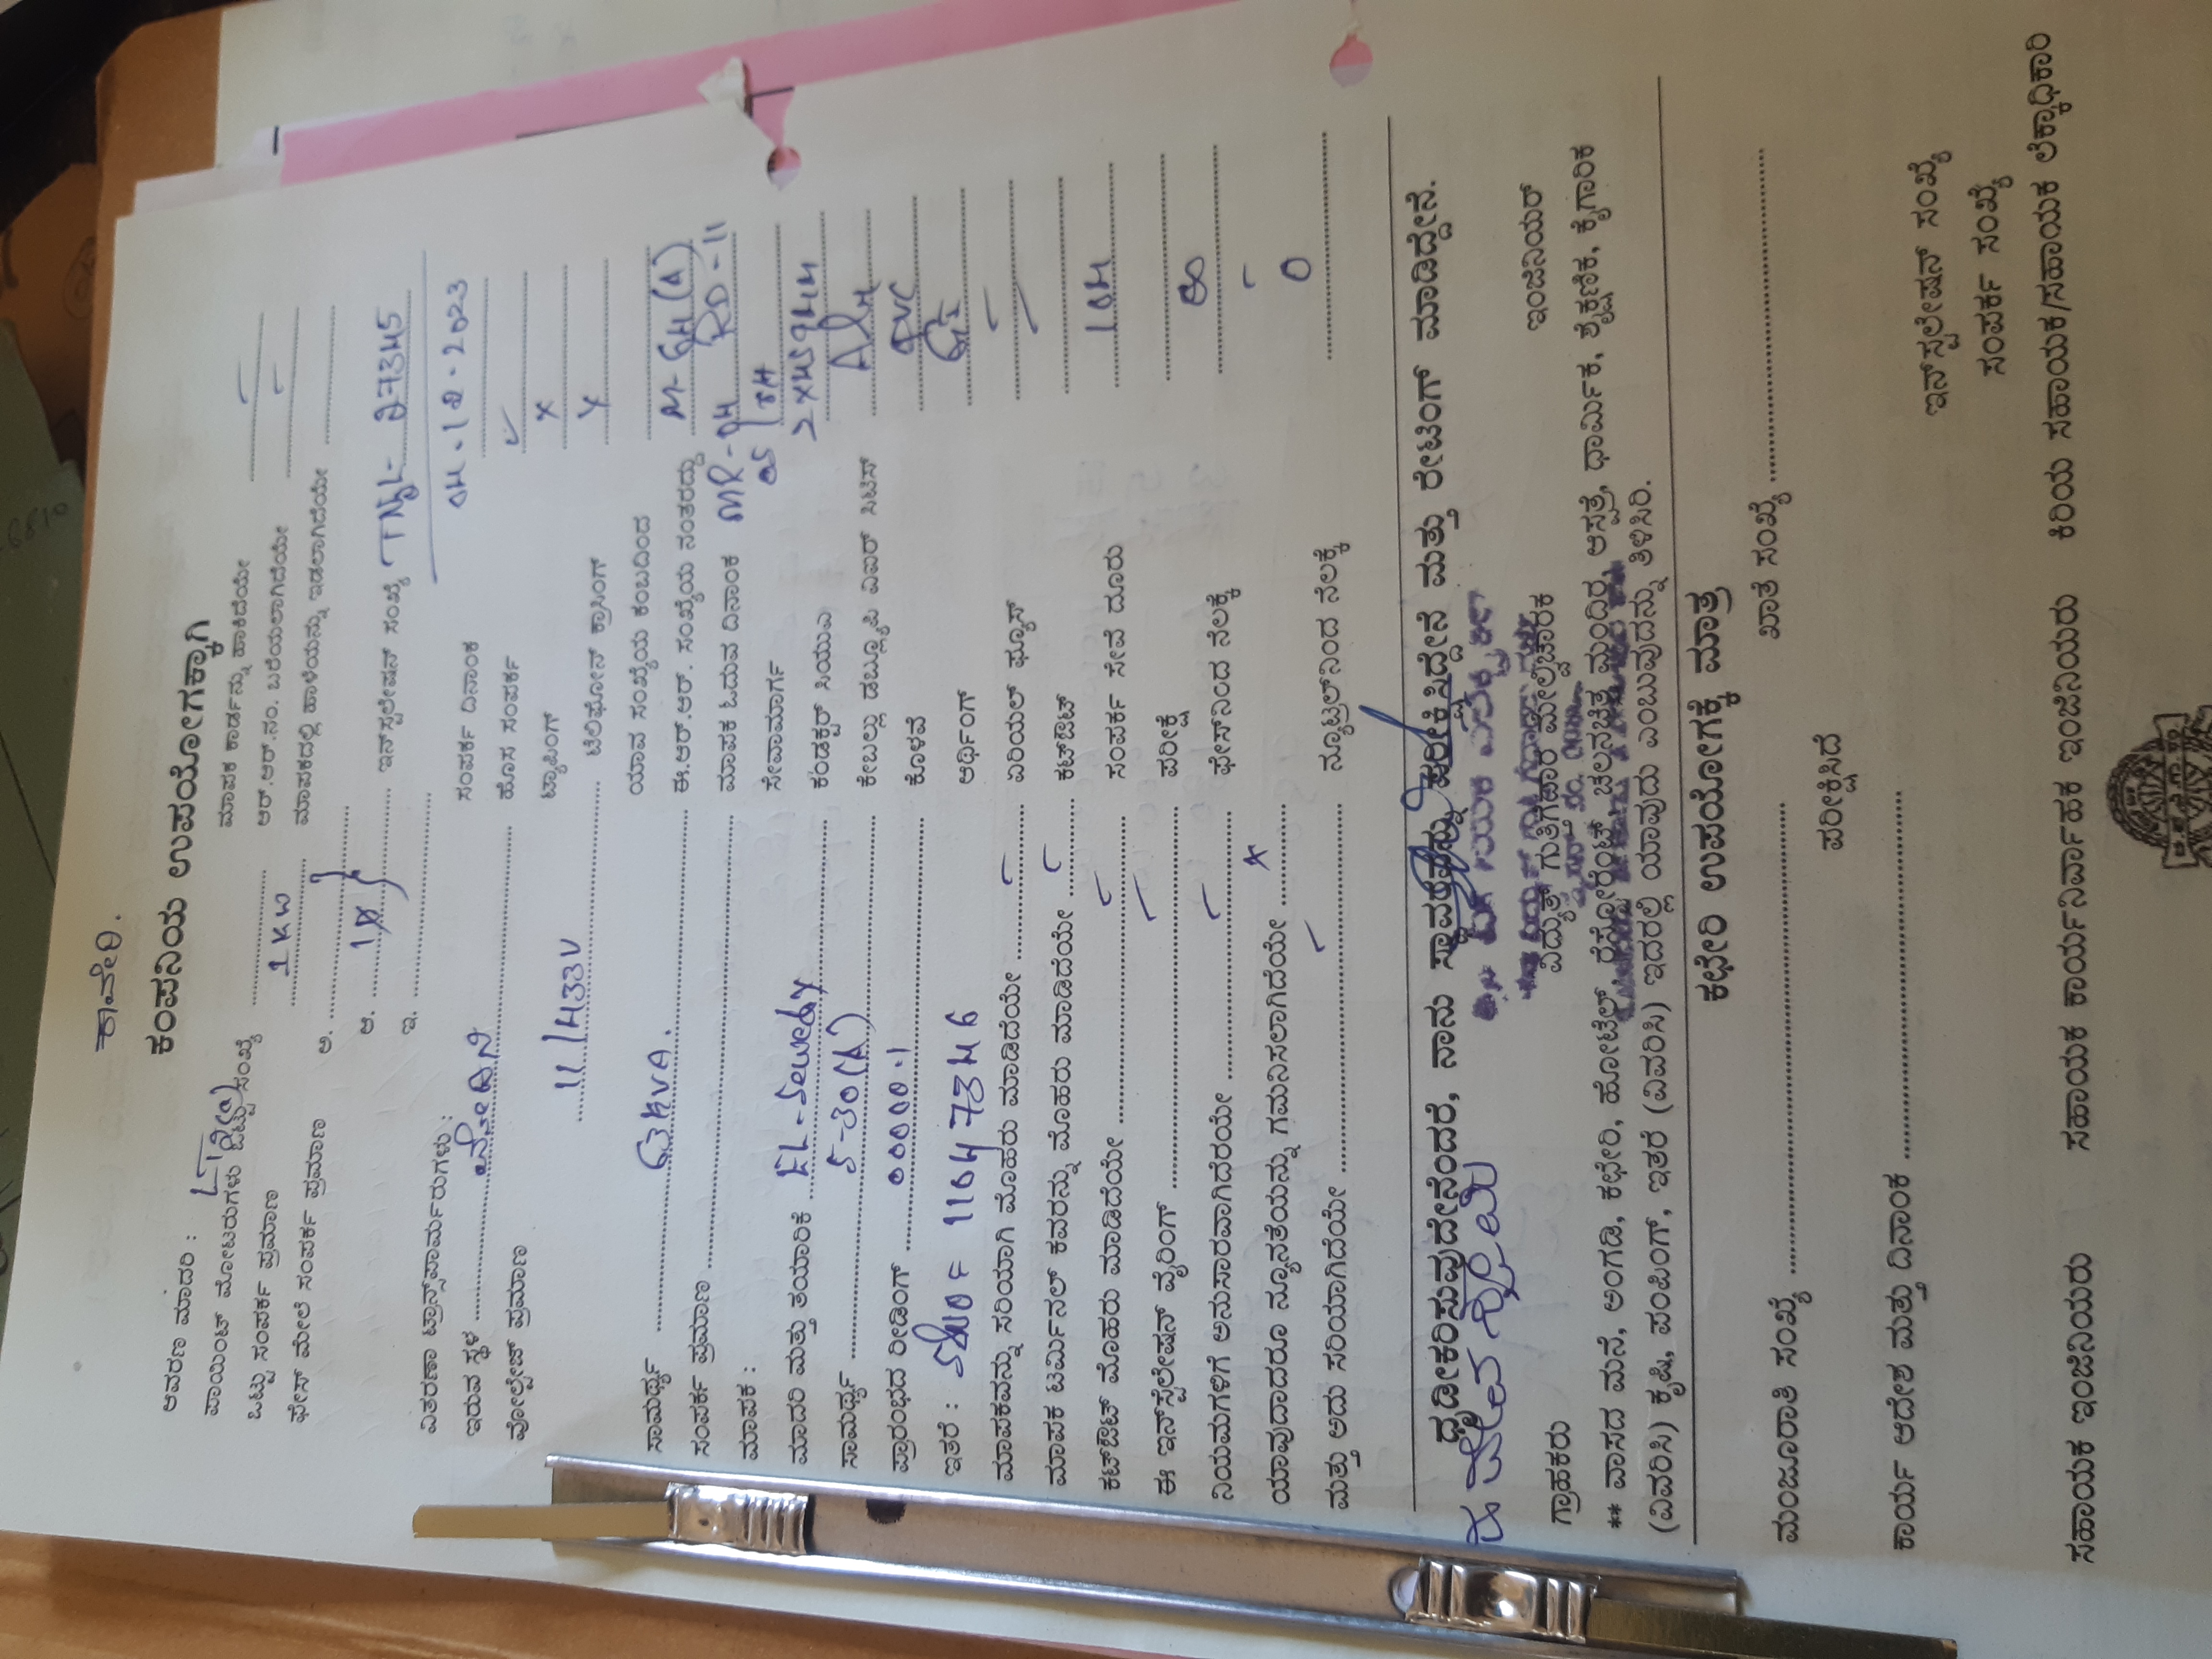 ಕಾವೇರಿ.
ಕಂಪನಿಯ ಉಪಯೋಗಕ್ಕಾಗಿ
ಆವರಣ ಮಾದರಿ : ಮಾಪಕ ಕಾರ್ಡನ್ನು ಹಾಕಿದೆಯೇ
ಪಾಯಿಂಟ್ ಮೋಟರುಗಳು ಒಟ್ಟು ಸಂಖ್ಯೆ ಆರ್.ಆರ್.ನಂ. ಬರೆಯಲಾಗಿದೆಯೇ
ಒಟ್ಟು ಸಂಪರ್ಕ ಪ್ರಮಾಣ 1 KW ಮಾಪಕದಲ್ಲಿ ಹಾಳೆಯನ್ನು ಇಡಲಾಗಿದೆಯೇ
ಫೇಸ್ ಮೇಲೆ ಸಂಪರ್ಕ ಪ್ರಮಾಣ ಅ.
ಆ. 1Ø ಇನ್‌ಸ್ಟಲೇಷನ್ ಸಂಖ್ಯೆ TNYL- 27345
ಇ.
ವಿತರಣಾ ಟ್ರಾನ್ಸ್‌ಫಾರ್ಮರುಗಳು : ಸಂಪರ್ಕ ದಿನಾಂಕ 04.12.2023
ಇರುವ ಸ್ಥಳ ಹೊಸ ಸಂಪರ್ಕ ✓
ವೋಲ್ಟೇಜ್ ಪ್ರಮಾಣ ಟ್ಯಾಪಿಂಗ್ x
11/433V ಟೆಲಿಫೋನ್ ಕ್ರಾಸಿಂಗ್ x
ಯಾವ ಸಂಖ್ಯೆಯ ಕಂಬದಿಂದ
ಸಾಮರ್ಥ್ಯ 63KVA. ಈ.ಆರ್.ಆರ್. ಸಂಖ್ಯೆಯ ನಂತರದ್ದು
ಸಂಪರ್ಕ ಪ್ರಮಾಣ ಮಾಪಕ ಓದುವ ದಿನಾಂಕ MR-04 RD-11
ಮಾಪಕ : ಸೇವಾಮಾರ್ಗ
ಮಾದರಿ ಮತ್ತು ತಯಾರಿಕೆ ಕಂಡಕ್ಟರ್ ಸಿಯುಎ
ಸಾಮರ್ಥ್ಯ 5-30(A) ಕೇಬಲ್ಲು ಡಬ್ಲ್ಯೂಪಿ ಏಐರ್ ಸಿಟಿಸ್
ಪ್ರಾರಂಭದ ರೀಡಿಂಗ್ 00000.1 ಕೊಳವೆ PVC
ಇತರೆ : ಅರ್ಥಿಂಗ್ GI
ಮಾಪಕವನ್ನು ಸರಿಯಾಗಿ ಮೊಹರು ಮಾಡಿದೆಯೇ ✓ ಏರಿಯಲ್ ಫ್ಯೂಸ್
ಮಾಪಕ ಟರ್ಮಿನಲ್ ಕವರನ್ನು ಮೊಹರು ಮಾಡಿದೆಯೇ ✓ ಕಟ್‌ಔಟ್
ಕಟ್‌ಔಟ್ ಮೊಹರು ಮಾಡಿದೆಯೇ ✓ ಸಂಪರ್ಕ ಸೇವೆ ದೂರು 10M
ಈ ಇನ್‌ಸ್ಟೆಲೇಷನ್ ವೈರಿಂಗ್ ✓ ಪರೀಕ್ಷೆ
ನಿಯಮಗಳಿಗೆ ಅನುಸಾರವಾಗಿದೆರಯೇ ✓ ಫೇಸ್‌ನಿಂದ ನೆಲಕ್ಕೆ
ಯಾವುದಾದರೂ ನ್ಯೂನತೆಯನ್ನು ಗಮನಿಸಲಾಗಿದೆಯೇ x
ಮತ್ತು ಅದು ಸರಿಯಾಗಿದೆಯೇ ✓ ನ್ಯೂಟ್ರಲ್‌ನಿಂದ ನೆಲಕ್ಕೆ 0
ದೃಡೀಕರಿಸುವುದೇನೆಂದರೆ, ನಾನು ಸ್ಥಾವರವನ್ನು ಪರೀಕ್ಷಿಸಿದ್ದೇನೆ ಮತ್ತು ರೇಟಿಂಗ್ ಮಾಡಿದ್ದೇನೆ.
ಗ್ರಾಹಕರು ವಿದ್ಯುತ್ ಗುತ್ತಿಗೆದಾರ ಮೇಲ್ವಿಚಾರಕ ಇಂಜಿನಿಯರ್
** ವಾಸದ ಮನೆ, ಅಂಗಡಿ, ಕಛೇರಿ, ಹೋಟೆಲ್, ರೆಸ್ಟೋರೆಂಟ್, ಚಲನಚಿತ್ರ ಮಂದಿರ, ಆಸ್ಪತ್ರೆ, ಧಾರ್ಮಿಕ, ಶೈಕ್ಷಣಿಕ, ಕೈಗಾರಿಕ
(ವಿವರಿಸಿ) ಕೃಷಿ, ಪಂಪಿಂಗ್, ಇತರೆ (ವಿವರಿಸಿ) ಇದರಲ್ಲಿ ಯಾವುದು ಎಂಬುವುದನ್ನು ತಿಳಿಸಿರಿ.
ಕಛೇರಿ ಉಪಯೋಗಕ್ಕೆ ಮಾತ್ರ
ಮಂಜೂರಾತಿ ಸಂಖ್ಯೆ ಖಾತೆ ಸಂಖ್ಯೆ
ಪರೀಕ್ಷಿಸಿದೆ
ಕಾರ್ಯ ಆದೇಶ ಮತ್ತು ದಿನಾಂಕ ಇನ್‌ಸ್ಟಲೇಷನ್ ಸಂಖ್ಯೆ
ಸಂಪರ್ಕ ಸಂಖ್ಯೆ
ಸಹಾಯಕ ಇಂಜಿನಿಯರು ಸಹಾಯಕ ಕಾರ್ಯನಿರ್ವಾಹಕ ಇಂಜಿನಿಯರು ಕಿರಿಯ ಸಹಾಯಕ/ಸಹಾಯಕ ಲೆಕ್ಕಾಧಿಕಾರಿ